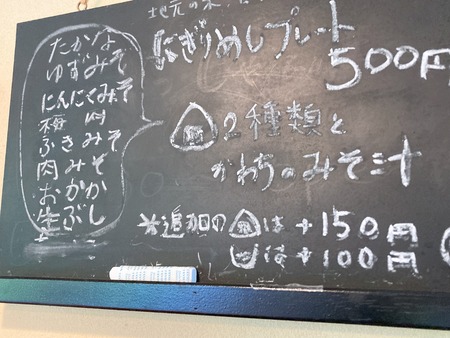 地元の米、
にぎりめしプレート
500円
たかな
ゆずみそ
にんにくみそ
梅
ふきみそ
肉みそ
おかか
生ぶし
2種類と
かわちのみそ汁
※追加のは+150円
は+100円